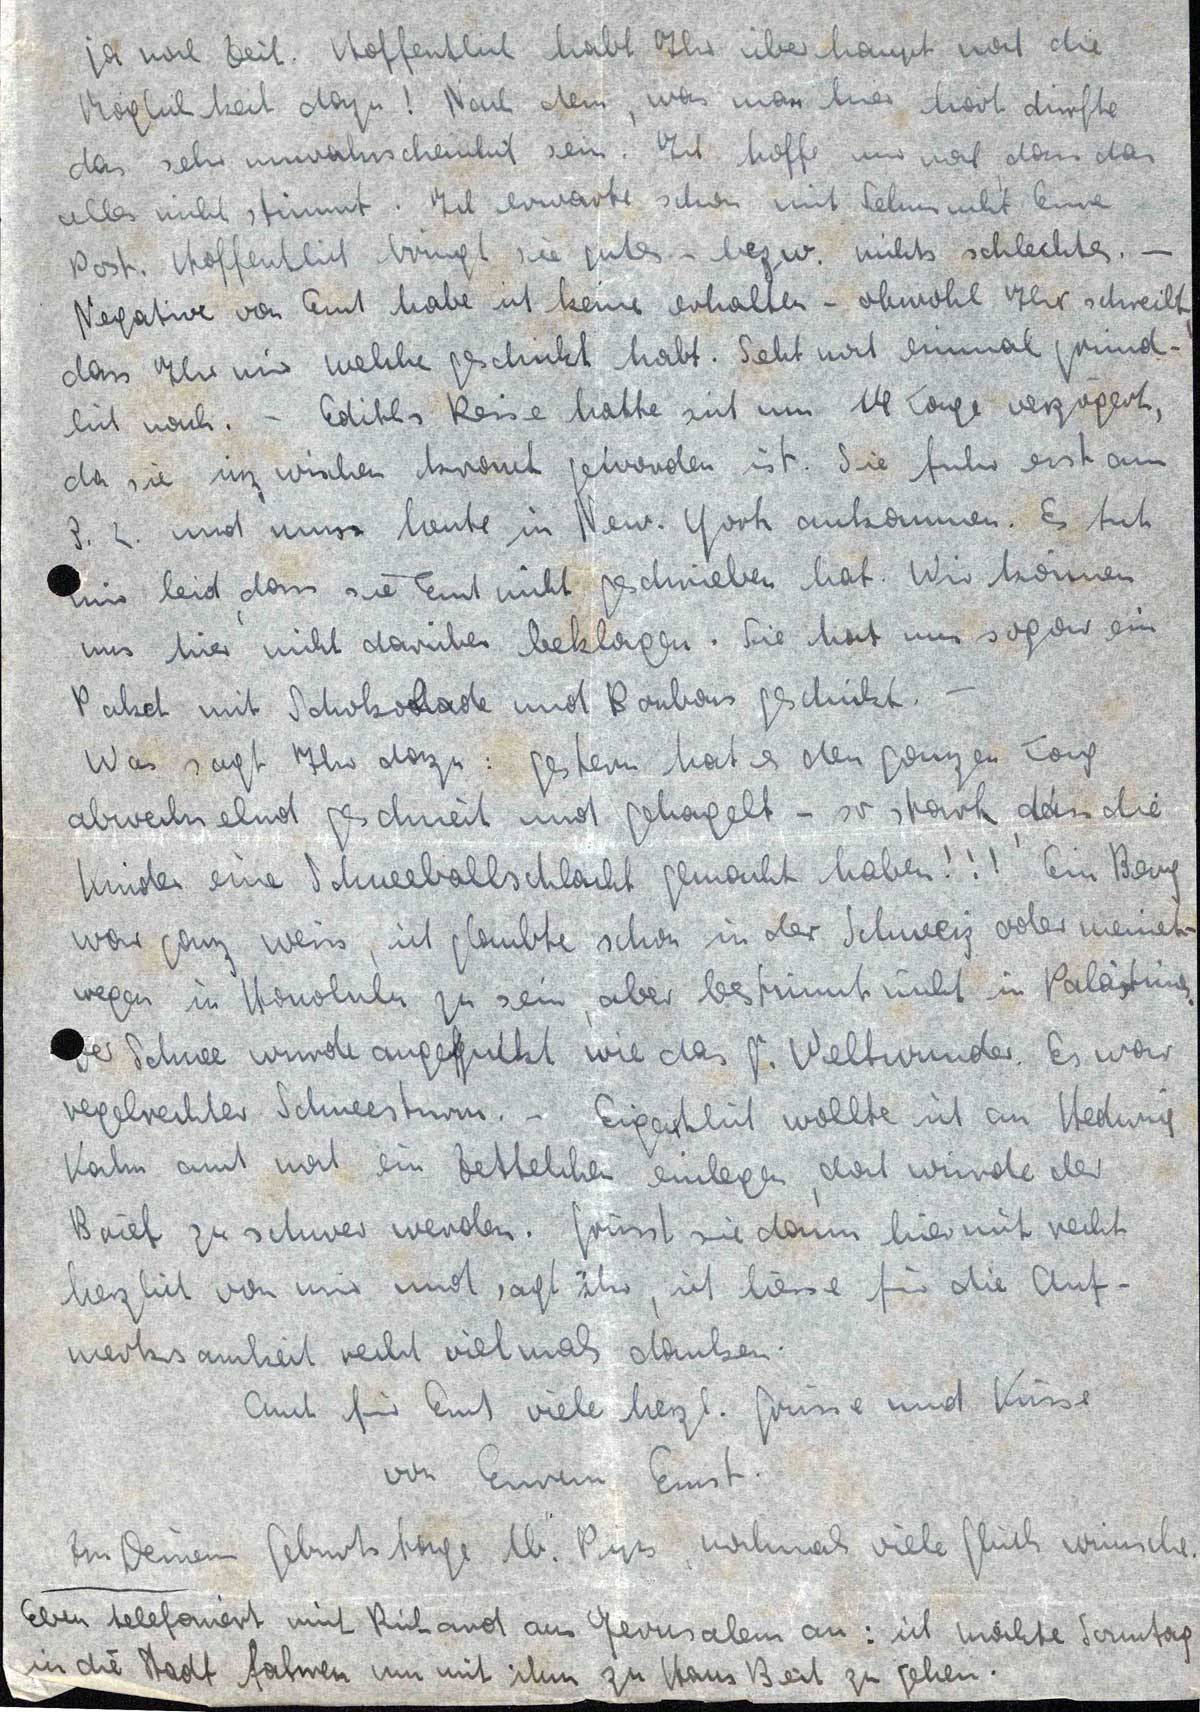 ja noch Zeit. Hoffentlich habt Ihr überhaupt noch die
Möglichkeit dazu! Nach dem, was man hier hört dürfte
das sehr unwahrscheinlich sein. Ich hoffe nur noch, dass das
alles nicht stimmt. Ich erwarte schon mit Sehnsucht Eure
Post. Hoffentlich bringt sie gutes - bezw. nichts schlechtes. -
Negative von Euch habe ich keine erhalten - obwohl Ihr schreibt,
dass Ihr mir welche geschickt habt. Seht noch einmal gründ-
lich nach. - Ediths Reise hatte sich um 14 Tage verzögert,
da sie inzwischen krank geworden ist. Sie fuhr erst am
3. 2. und muss heute in New-York ankommen. Es tut
mir leid, dass sie Euch nicht geschrieben hat. Wir können
uns hier nicht darüber beklagen. Sie hat uns sogar ein
Paket mit Schokolade und Bonbons geschickt. -
Was sagt Ihr dazu: gestern hat es den ganzen Tag
abwechselnd geschneit und gehagelt - so stark, dass die
Kinder eine Schneeballschlacht gemacht haben!!! Ein Berg
war ganz weiss, ich glaubte schon in der Schweiz oder meinet-
wegen in Honolulu zu sein, aber bestimmt nicht in Palästina.
Der Schnee wurde angeguckt wie das 8. Weltwunder. Es war
regelrechter Schneesturm. - Eigentlich wollte ich an Hedwig
Kahn auch noch ein Zettelchen einlegen, doch würde der
Brief zu schwer werden. Grüsst sie dann hiermit recht
herzlich von mir und sagt ihr, ich liesse für die Auf-
merksamkeit recht vielmals danken.
Auch für Euch viele herzl. Grüsse und Küsse
von Eurem Ernst.
Zu Deinem Geburtstage lb. Paps, nochmals viele Glückwünsche.
Eben telefoniert mich Richard aus Jerusalem an: ich möchte Sonntag
in die Stadt fahren um mit ihm zu Hans Beit zu gehen.